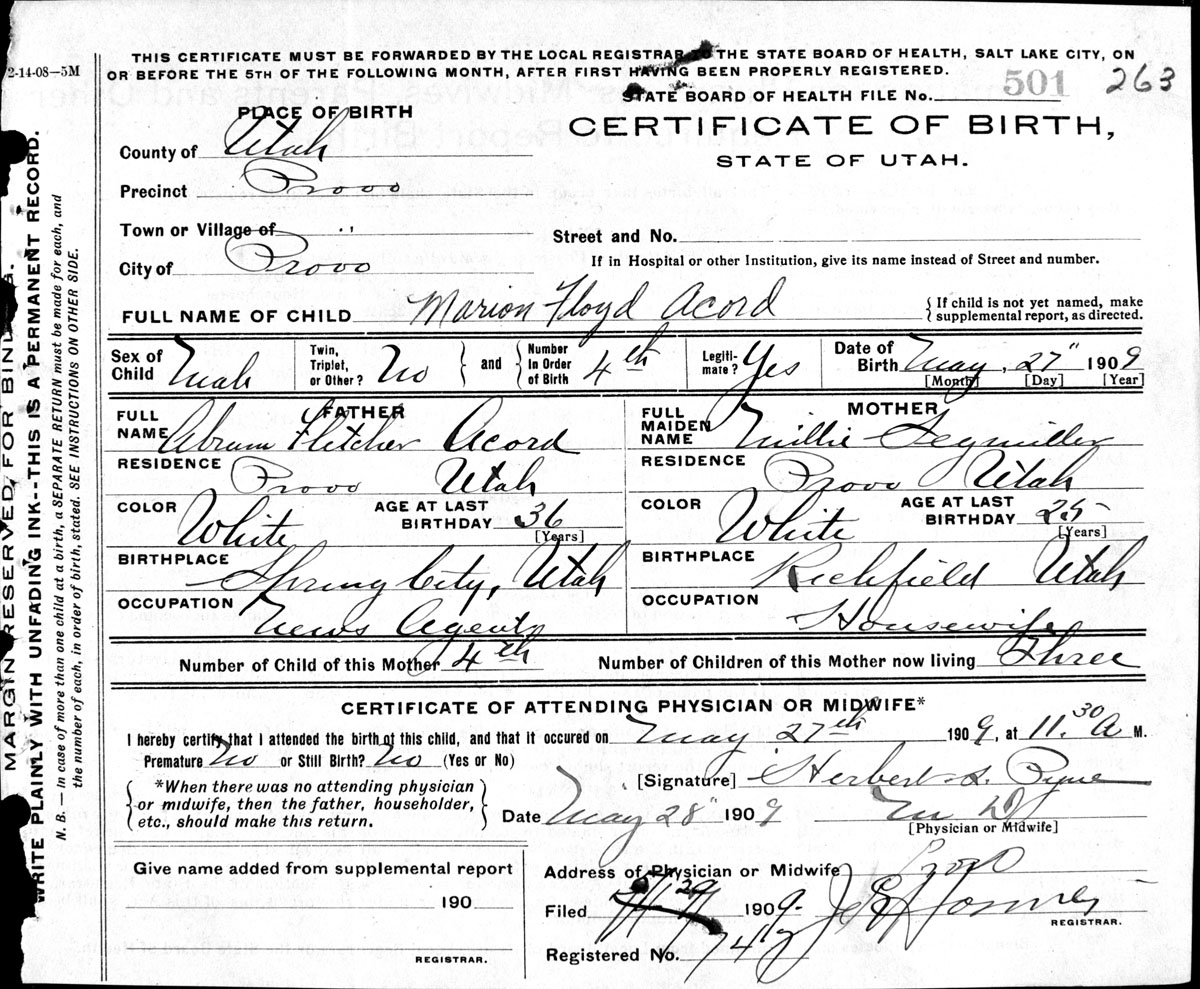 2-14-08—5M
THIS CERTIFICATE MUST BE FORWARDED BY THE LOCAL REGISTRAR TO THE STATE BOARD OF HEALTH, SALT LAKE CITY, ON
OR BEFORE THE 5TH OF THE FOLLOWING MONTH, AFTER FIRST HAVING BEEN PROPERLY REGISTERED.
STATE BOARD OF HEALTH FILE No. 501 263
CERTIFICATE OF BIRTH,
STATE OF UTAH.
PLACE OF BIRTH
County of Utah
Precinct Provo
Town or Village of "
Street and No.
City of Provo
If in Hospital or other Institution, give its name instead of Street and number.
FULL NAME OF CHILD Marion Floyd Acord
{If child is not yet named, make
supplemental report, as directed.
Sex of Child Male
Twin, Triplet, or Other? No
and
Number in Order of Birth 4th
Legiti-mate? Yes
Date of Birth May, 27" 1909
[Month] [Day] [Year]
FATHER
FULL NAME Abram Fletcher Acord
RESIDENCE Provo Utah
COLOR White
AGE AT LAST BIRTHDAY 36
[Years]
BIRTHPLACE Spring City, Utah
OCCUPATION News Agent
MOTHER
FULL MAIDEN NAME Millie Segmiller
RESIDENCE Provo Utah
COLOR White
AGE AT LAST BIRTHDAY 25
[Years]
BIRTHPLACE Richfield Utah
OCCUPATION Housewife
Number of Child of this Mother 4th
Number of Children of this Mother now living Three
CERTIFICATE OF ATTENDING PHYSICIAN OR MIDWIFE*
I hereby certify that I attended the birth of this child, and that it occured on May 27th 1909, at 11.30 A M.
Premature No or Still Birth? No (Yes or No)
*When there was no attending physician
or midwife, then the father, householder,
etc., should make this return.
[Signature] Herbert S. Pyne
Date May 28" 1909 M D
[Physician or Midwife]
Give name added from supplemental report
190
REGISTRAR.
Address of Physician or Midwife Provo
Filed 5/29 1909
REGISTRAR.
Registered No.
MARGIN RESERVED FOR BINDING.
WRITE PLAINLY WITH UNFADING INK--THIS IS A PERMANENT RECORD.
N. B. — In case of more than one child at a birth, a SEPARATE RETURN must be made for each, and
the number of each, in order of birth, stated. SEE INSTRUCTIONS ON OTHER SIDE.